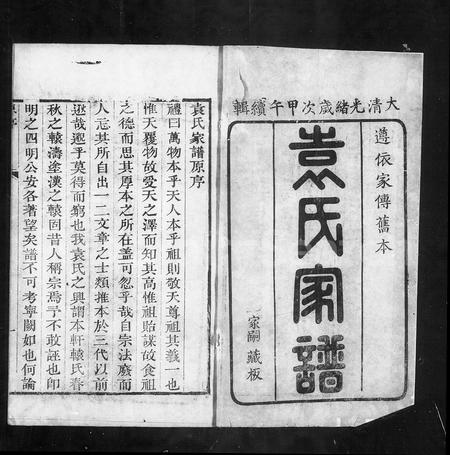 大清光緒歲次甲午續輯
遵依家傳舊本
袁氏家譜
家嗣藏板
袁氏家譜原序
禮曰萬物本乎天人本乎祖則敬天尊祖其義一也
惟天覆物故受天之澤而知其高惟祖貽謀故食祖
之德而思其厚本之所在蓋可忽乎哉自宗法廢而
人忘其所自出一二文章之士類推本於三代以前
遐哉邈乎莫得而窮也我袁氏之興謂本軒轅氏春
秋之轅濤塗漢之轅固昔人稱宗焉予不敢誣也即
明之四明公安各著望矣譜不可考寧闕如也何論